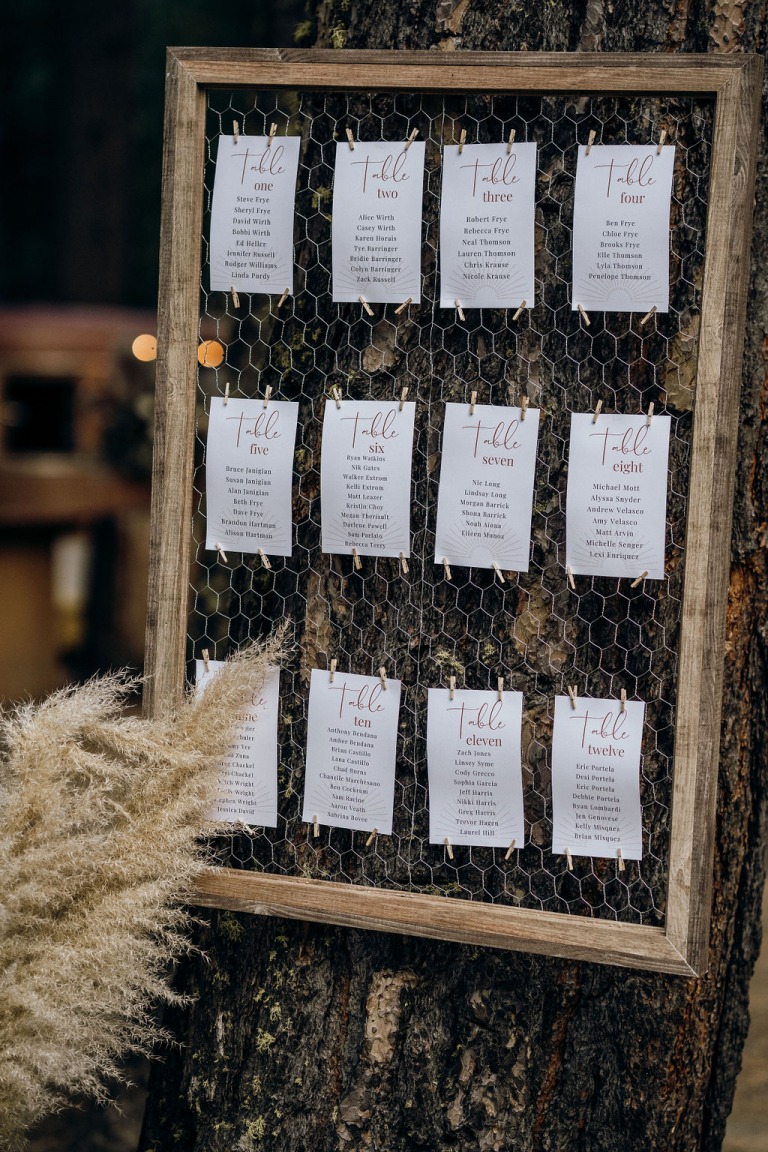 Table
one
Steve Frye
Sheryl Frye
David Wirth
Bobbi Wirth
Ed Heller
Jennifer Russell
Rodger Williams
Linda Purdy
Table
two
Alice Wirth
Casey Wirth
Karen Iiorais
Tye Barringer
Bridie Barringer
Colyn Barringer
Zack Russell
Table
three
Robert Frye
Rebecca Frye
Neal Thomson
Lauren Thomson
Chris Krause
Nicole Krause
Table
four
Ben Frye
Chloe Frye
Brooks Frye
Elle Thomson
Lyla Thomson
Penelope Thomson
Table
five
Bruce Janigian
Susan Janigian
Alan Janigian
Beth Frye
Dave Frye
Brandon Hartman
Alison Hartman
Table
six
Ryan Watkins
Nik Gates
Walker Extrom
Kelli Extrom
Matt Leazer
Kristin Choy
Megan Theriault
Darlene Powell
Sam Porlato
Rebecca Terry
Table
seven
Nic Long
Lindsay Long
Morgan Barrick
Shona Barrick
Noah Aiona
Eileen Muñoz
Table
eight
Michael Mott
Alyssa Snyder
Andrew Velasco
Amy Velasco
Matt Arvin
Michelle Senger
Lexi Enriquez
Chackel
Chackel
Wright
Wright
Wright
Jessica David
Table
ten
Anthony Bendana
Amber Bendana
Brian Castillo
Lana Castillo
Chad Burns
Chanelle Marchisano
Ben Cockrum
Sam Racine
Aaron Veath
Sabrina Bovee
Table
eleven
Zach Jones
Linsey Syme
Cody Grecco
Sophia Garcia
Jeff Harris
Nikki Harris
Greg Harris
Trevor Hagen
Laurel Hill
Table
twelve
Eric Portela
Desi Portela
Eric Portela
Debbie Portela
Ryan Lombardi
Jen Genovese
Kelly Misquez
Brian Misquez